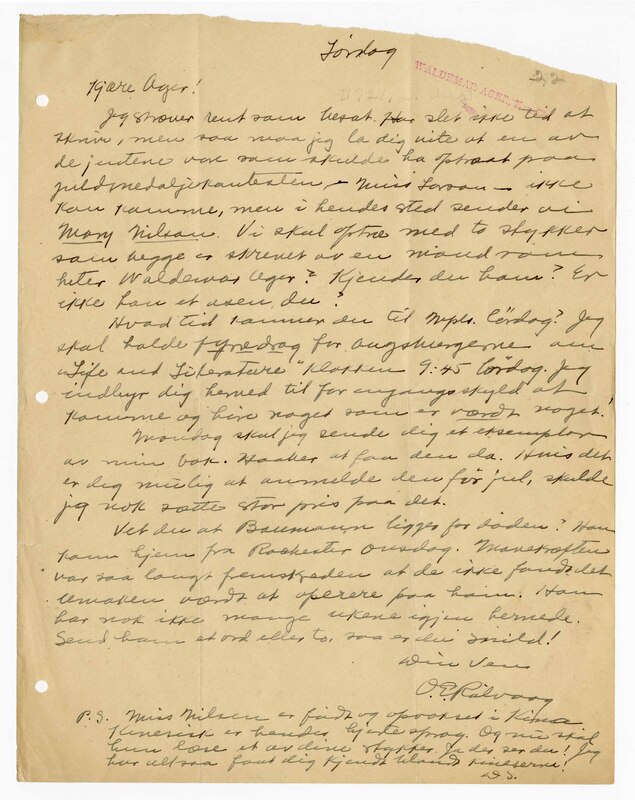 Lørdag
22
WALDEMAR AGER, E
Kjære Ager!
Jeg stræver rent som besat. Har slet ikke tid at
skrive, men saa maa jeg la dig vite at en av
de jentene vore som skulde ha optraat paa
guldmedaljekontesten, – Miss – ikke
kan komme, men i hendes sted sender vi
Mary Nilsen. Vi skal optræ med to stykker
som begge er skrevet av en mand som
heter Waldemar Ager? Kjender du ham? Er
ikke han et asen, du?
Hvad tid kommer du til Mpls. lördag? Jeg
skal holde foredrag for augsburgerne om
"Life and Literature" klokken 9:45 lördag. Jeg
indbyr dig herved til for engangsskyld at
komme og höre noget som er værdt noget!
Mandag skal jeg sende dig et eksemplar
av min bok. Haaber at faa den da. Hvis det
er dig mulig at anmelde den för jul, skulde
jeg nok sætte stor pris paa det.
Vet du at Baumann ligger for döden? Han
kom hjem fra Rochester onsdag. Mavekræften
var saa langt fremskreden at de ikke fandt det
umaken værdt at operere paa ham. Han
har nok ikke mange ukene igjen hernede.
Send ham et ord eller to, saa er du snild!
Din Ven
O.E. Rölvaag
P.S. Miss Nilsen er födt og opvokset i Kina
Kinesisk er hendes hjertesprog. Og nu skal
hun læse et av dine stykker. Ja der ser du! Jeg
har altsaa faat dig kjendt blandt kineserne!
D.S.